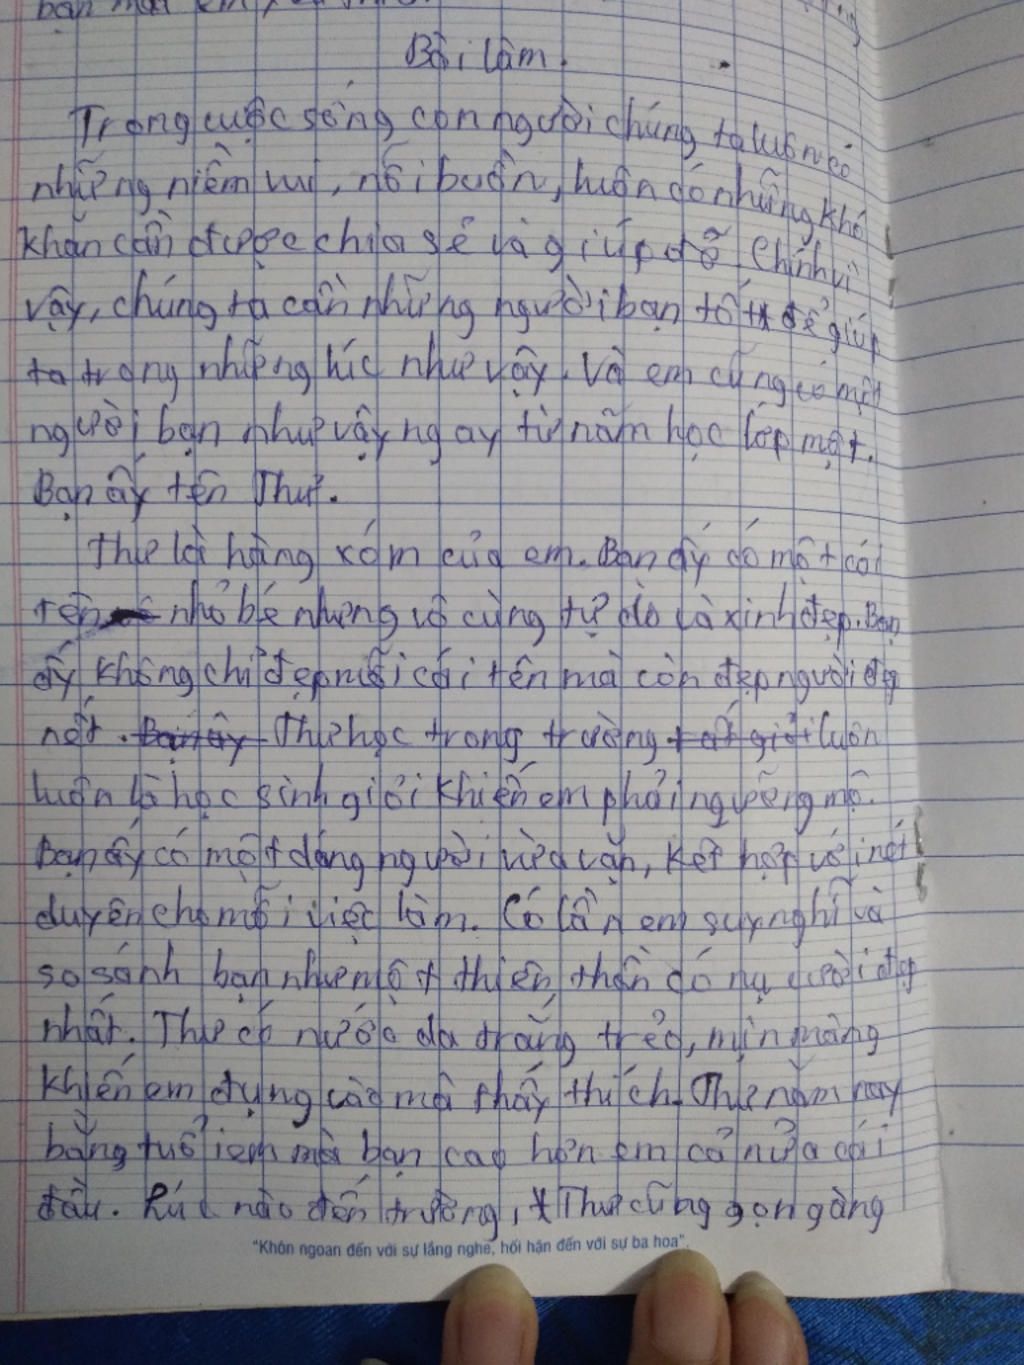 bạn mà em
Bài làm.
Trong cuộc sống con người chúng ta luôn có
những niềm vui, nỗi buồn, luôn có những khó
khăn cần được chia sẻ và giúp đỡ. Chính vì
vậy, chúng ta cần những người bạn tốt để giúp
ta trong những lúc như vậy. Và em cũng có một
người bạn như vậy ngay từ năm học lớp một.
Bạn ấy tên Thư.
Thư là hàng xóm của em. Bạn ấy có một cái
tên nhỏ bé nhưng vô cùng tự do và xinh đẹp. Bạn
ấy không chỉ đẹp mỗi cái tên mà còn đẹp người đẹp
nết. Bạn ấy Thư học trong trường rất giỏi luôn
luôn là học sinh giỏi khiến em phải ngưỡng mộ.
Bạn ấy có một dáng người vừa vặn, kết hợp với nét
duyên cho mỗi việc làm. Có lần em suy nghĩ và
so sánh bạn như một thiên thần có nụ cười đẹp
nhất. Thư có nước da trắng trẻo, mịn màng
khiến em đụng vào mà thấy thích. Thư năm nay
bằng tuổi em mà bạn cao hơn em cả nửa cái
đầu. Lúc nào đến trường, Thư cũng gọn gàng
"Khôn ngoan đến với sự lắng nghe, hối hận đến với sự ba hoa".